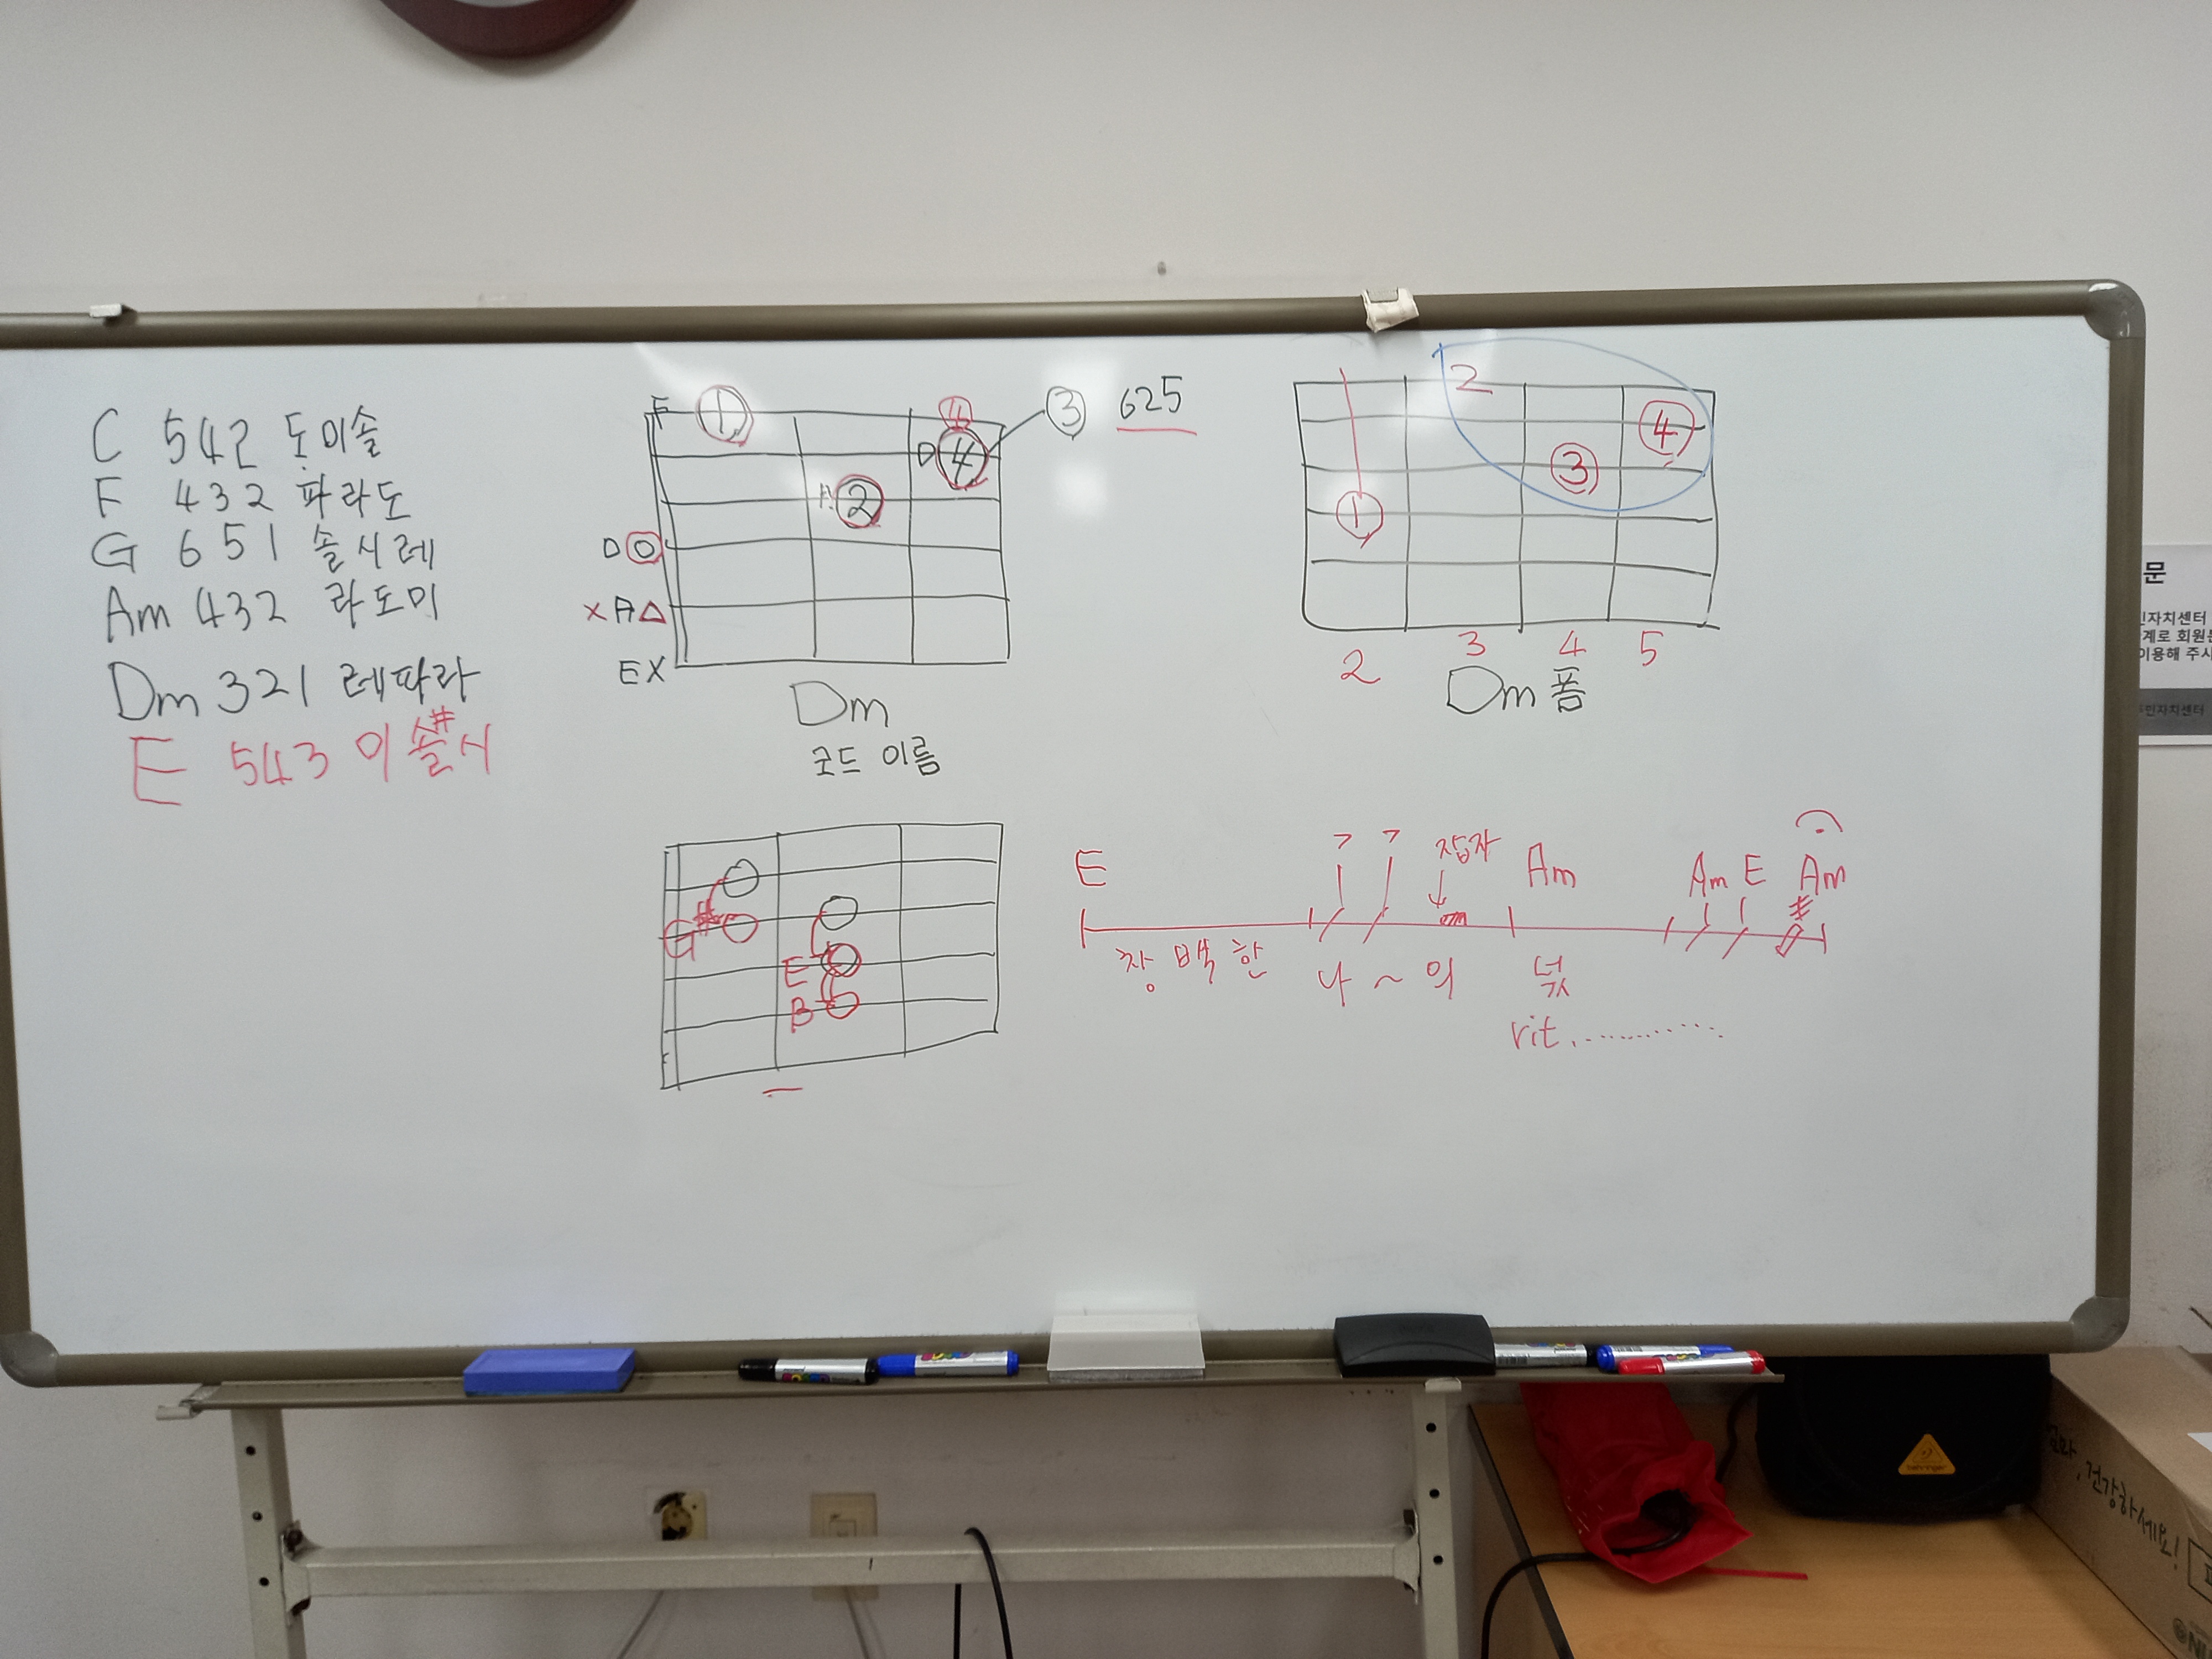 C 542 도미솔
F 432 파라도
G 651 솔시레
Am 432 라도미
Dm 321 레파라
E 543 미솔#시
F ① 4 ③ 625
D ④
A ②
D O
X A △
E X
Dm
코드 이름
2
④
③
①
2 3 4 5
Dm 폼
G#
E
B
E > > 잡자 Am Am E Am
창백한 나~의 넋
rit.
문
민자치센터
계로 회원
이용해 주시
민자치센터
behringer
건강하세요!